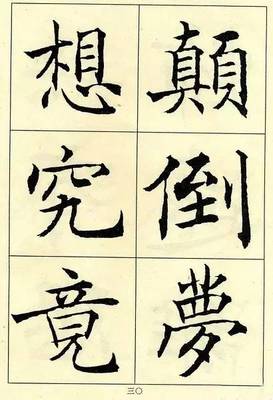 顛倒夢
想究竟
三〇